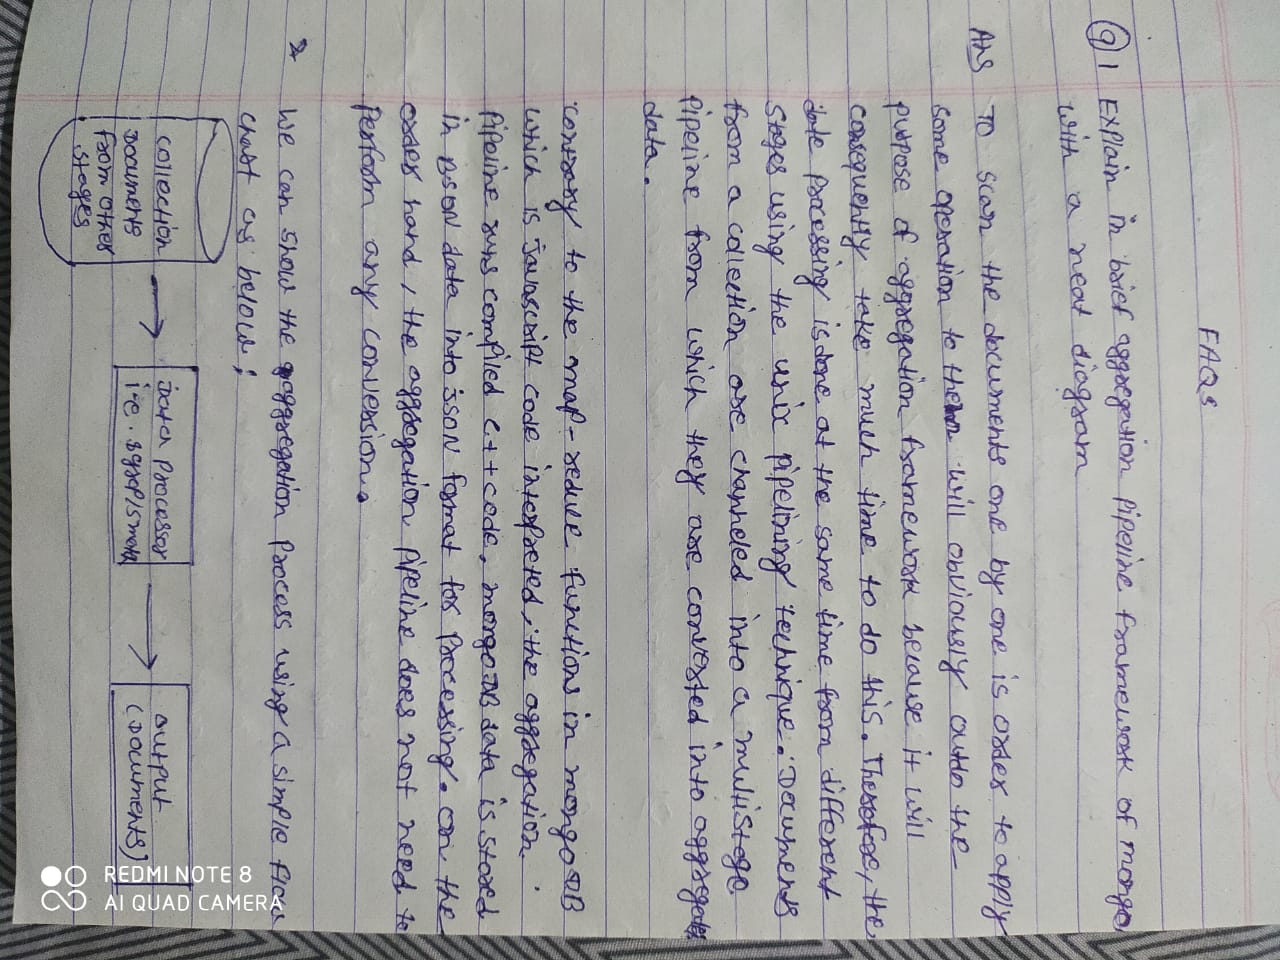 FAQS
Q1 Explain in brief aggregation pipeline framework of mongo
with a neat diagram
Ans To scan the documents one by one is order to apply
some operation to them will obviously outdo the
purpose of aggregation framework because it will
consequently take much time to do this. Therefore, the
date processing is done at the same time from different
stages using the unix pipelining technique. Documents
from a collection are channeled into a multistage
pipeline from which they are converted into aggregated
data.
contrary to the map-reduce functions in mongoDB
which is javascript code interpreted, the aggregation
pipeline runs compiled c++ code, mongoDB data is stored
in BSON data into JSON format for processing. on the
order hand, the aggregation pipeline does not need to
perform any conversion.
2 We can show the aggregation process using a simple flow
chart as below:
collection
Documents
from other
stages
Data processor
i.e.
output
(Documents)
REDMI NOTE 8
AI QUAD CAMERA